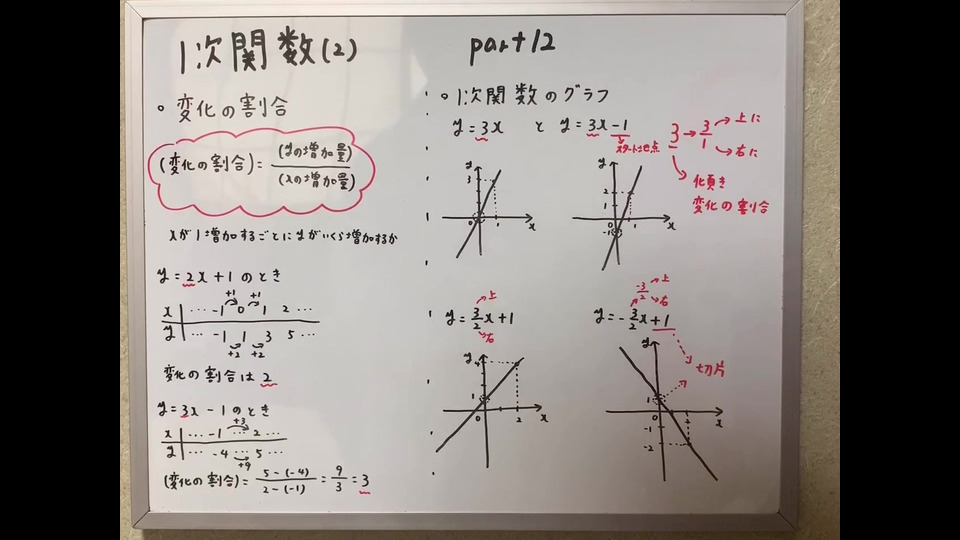 1次関数(2)
part12
。変化の割合
(変化の割合)=(yの増加量)/(xの増加量)
xが1増加するごとにyがいくら増加するか
y=2x+1のとき
+1 +1
x … -1 0 1 2 …
y … -1 1 3 5 …
+2 +2
変化の割合は2
y=3x-1のとき
+3
x … -1 … 2 …
y … -4 … 5 …
+9
(変化の割合)=5-(-4)/2-(-1)=9/3=3
。1次関数のグラフ
y=3x と y=3x-1
3→3/1
上に
右に
傾き
変化の割合
y
3
0 1 x
y
2
1
0 1 x
-1
y=3/2x+1
上
右
y
4
1
0 2 x
-3/2
上
右
y=-3/2x+1
切片
y
1
0 x
-1
-2